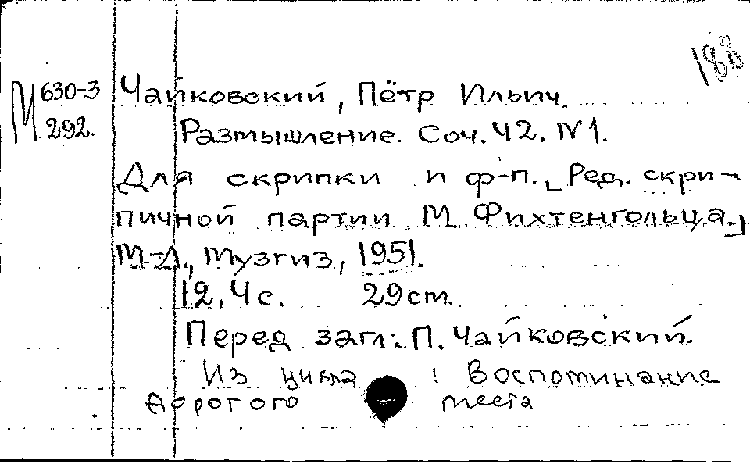 188
М 630-3 Чайковский, Пётр Ильич.
292. Размышление. Соч. 42. N1.
Для скрипки и ф-п. [Ред. скри-
пичной партии М. Фихтенгольца.]
М-Л., Музгиз, 1951.
12, 4 с. 29 cm.
Перед загл.: П. Чайковский.
Из цикла: Воспоминание
дорогого места